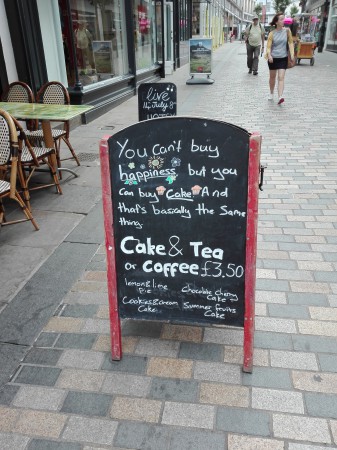 live
14 July 8
You can't buy
happiness but you
can buy Cake And
that's basically the Same
thing.
Cake & Tea
or Coffee £3,50
lemon & lime
Pie
Chocolate Cherry
Cake
Cookies & cream
Cake
Summer fruits
Cake